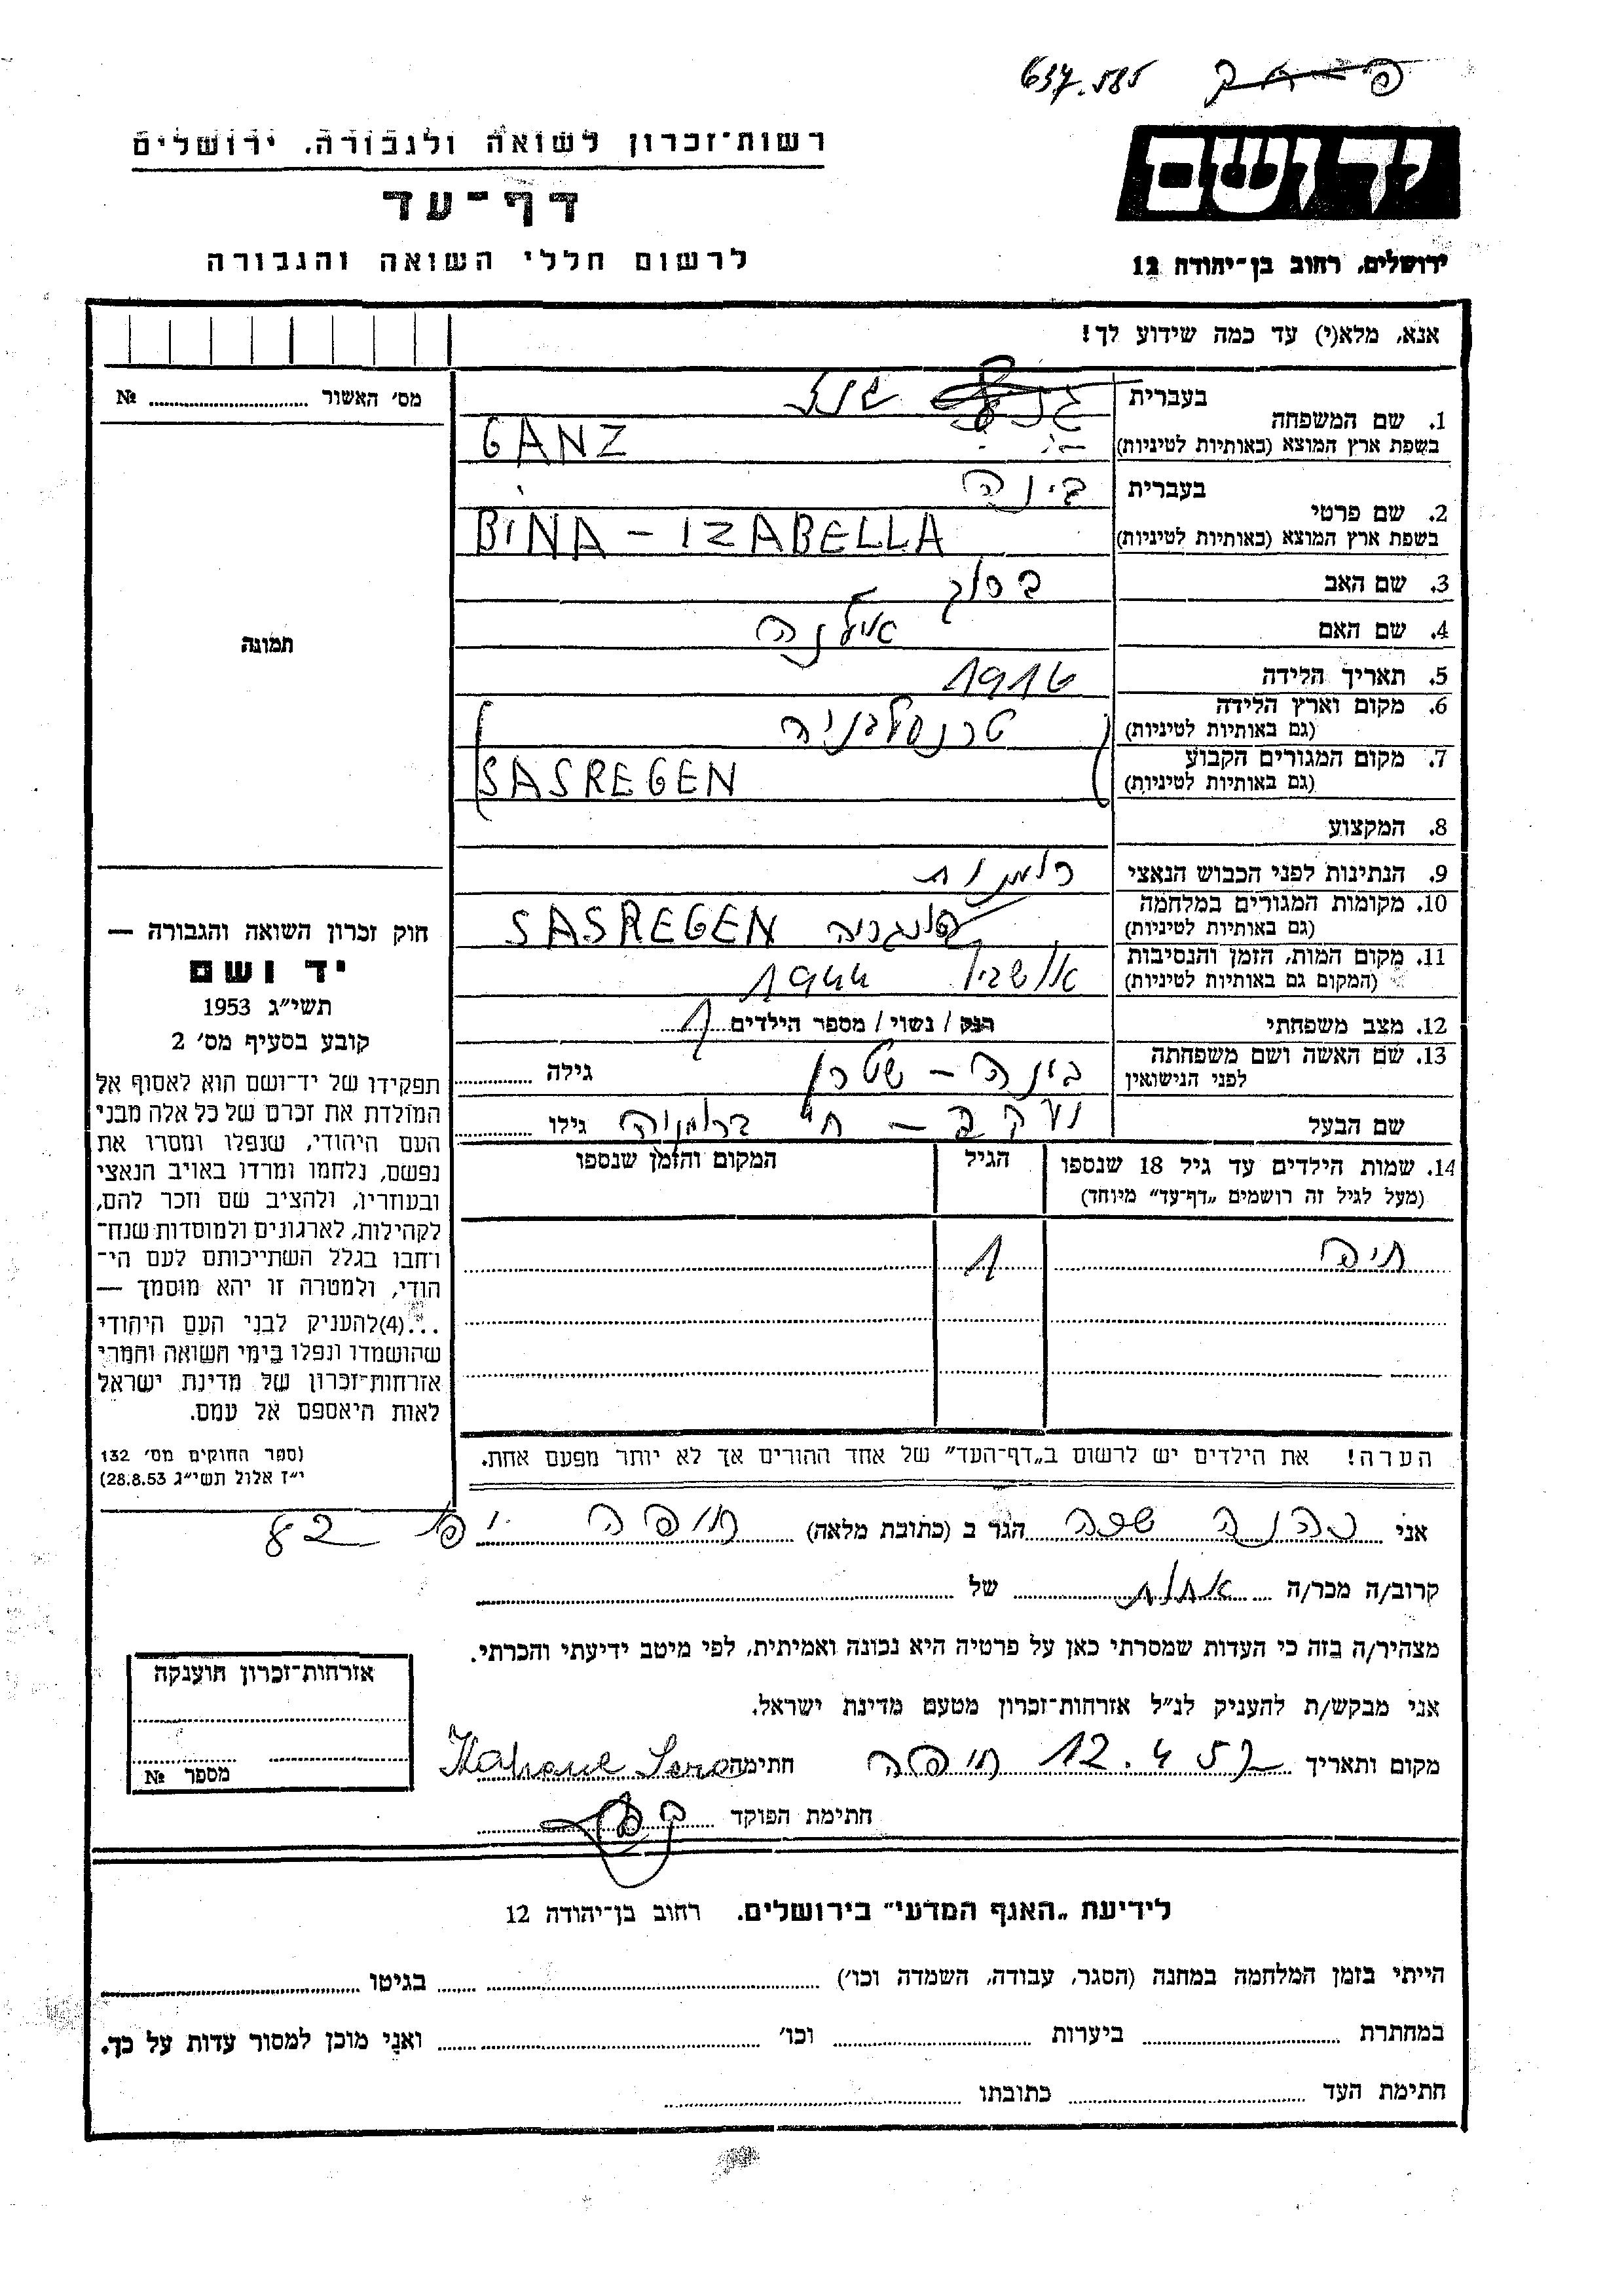 637.585
יד ושם
רשות־זכרון לשואה ולגבורה. ירושלים
דף־עד
לרשום חללי השואה והגבורה
ירושלים, רחוב בן־יהודה 12
אנא, מלא(י) עד כמה שידוע לך!
מס׳ האשור № 
1. שם המשפחה
בעברית גנץ
בשפת ארץ המוצא (באותיות לטיניות) GANZ
2. שם פרטי
בעברית בינה
בשפת ארץ המוצא (באותיות לטיניות) BINA - IZABELLA
3. שם האב ברוך
4. שם האם אילנה
5. תאריך הלידה 1916
6. מקום וארץ הלידה
(גם באותיות לטיניות) טרנסלבניה
7. מקום המגורים הקבוע
(גם באותיות לטיניות) SASREGEN
8. המקצוע
9. הנתינות לפני הכבוש הנאצי רומנות
10. מקומות המגורים במלחמה
(גם באותיות לטיניות) SASREGEN
11. מקום המות, הזמן והנסיבות
(המקום גם באותיות לטיניות) אושביץ 1944
12. מצב משפחתי רוק / נשוי / מספר הילדים 1
13. שם האשה ושם משפחתה
לפני הנישואין בינה - שטרן גילה
שם הבעל יעקב - חי ברומניה גילו
14. שמות הילדים עד גיל 18 שנספו
(מעל לגיל זה רושמים „דף־עד״ מיוחד)
הגיל
המקום והזמן שנספו
חיה 1
הערה! את הילדים יש לרשום ב„דף־העד״ של אחד ההורים אך לא יותר מפעם אחת.
תמונה
חוק זכרון השואה והגבורה —
יד ושם
תשי״ג 1953
קובע בסעיף מס׳ 2
תפקידו של יד־ושם הוא לאסוף אל
המולדת את זכרם של כל אלה מבני
העם היהודי, שנפלו ומסרו את
נפשם, נלחמו ומרדו באויב הנאצי
ובעוזריו, ולהציב שם וזכר להם,
לקהילות, לארגונים ולמוסדות שנח־
רחבו בגלל השתייכותם לעם הי־
הודי, ולמטרה זו יהא מוסמך —
...(4) להעניק לבני העם היהודי
שהושמדו ונפלו בימי השואה והמרי
אזרחות־זכרון של מדינת ישראל
לאות היאספם אל עמם.
(ספר החוקים מס׳ 132
י״ז אלול תשי״ג 28.8.53)
אני כהנה שרה הגר ב (כתובת מלאה) חיפה יפו 82
קרוב/ה מכר/ה אחות של
מצהיר/ה בזה כי העדות שמסרתי כאן על פרטיה היא נכונה ואמיתית, לפי מיטב ידיעתי והכרתי.
אני מבקש/ת להעניק לנ״ל אזרחות־זכרון מטעם מדינת ישראל.
מקום ותאריך 12.4.57 חיפה חתימה Kahane Sara
חתימת הפוקד
אזרחות־זכרון הוענקה
מספר №
לידיעת „האגף המדעי״ בירושלים. רחוב בן־יהודה 12
הייתי בזמן המלחמה במחנה (הסגר, עבודה, השמדה וכו׳) בגיטו
במחתרת ביערות וכו׳ ואני מוכן למסור עדות על כך.
חתימת העד כתובתו